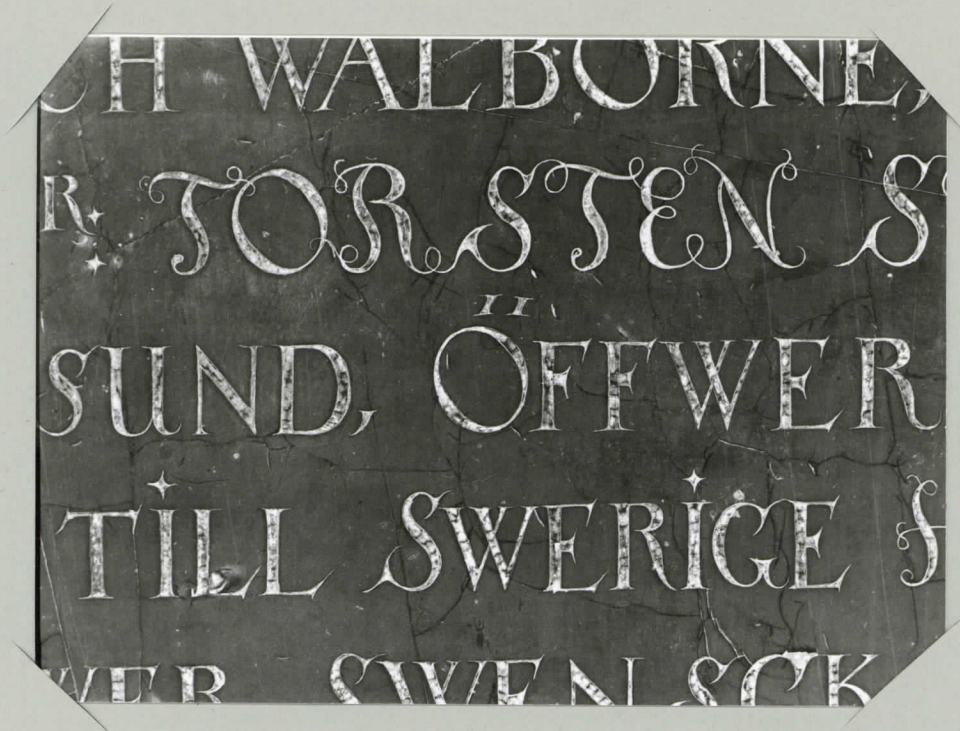 CH WALBORNE,
R. TORSTEN S
SUND, ÖFFWER
TILL SWERIGE
WER SWENSCK